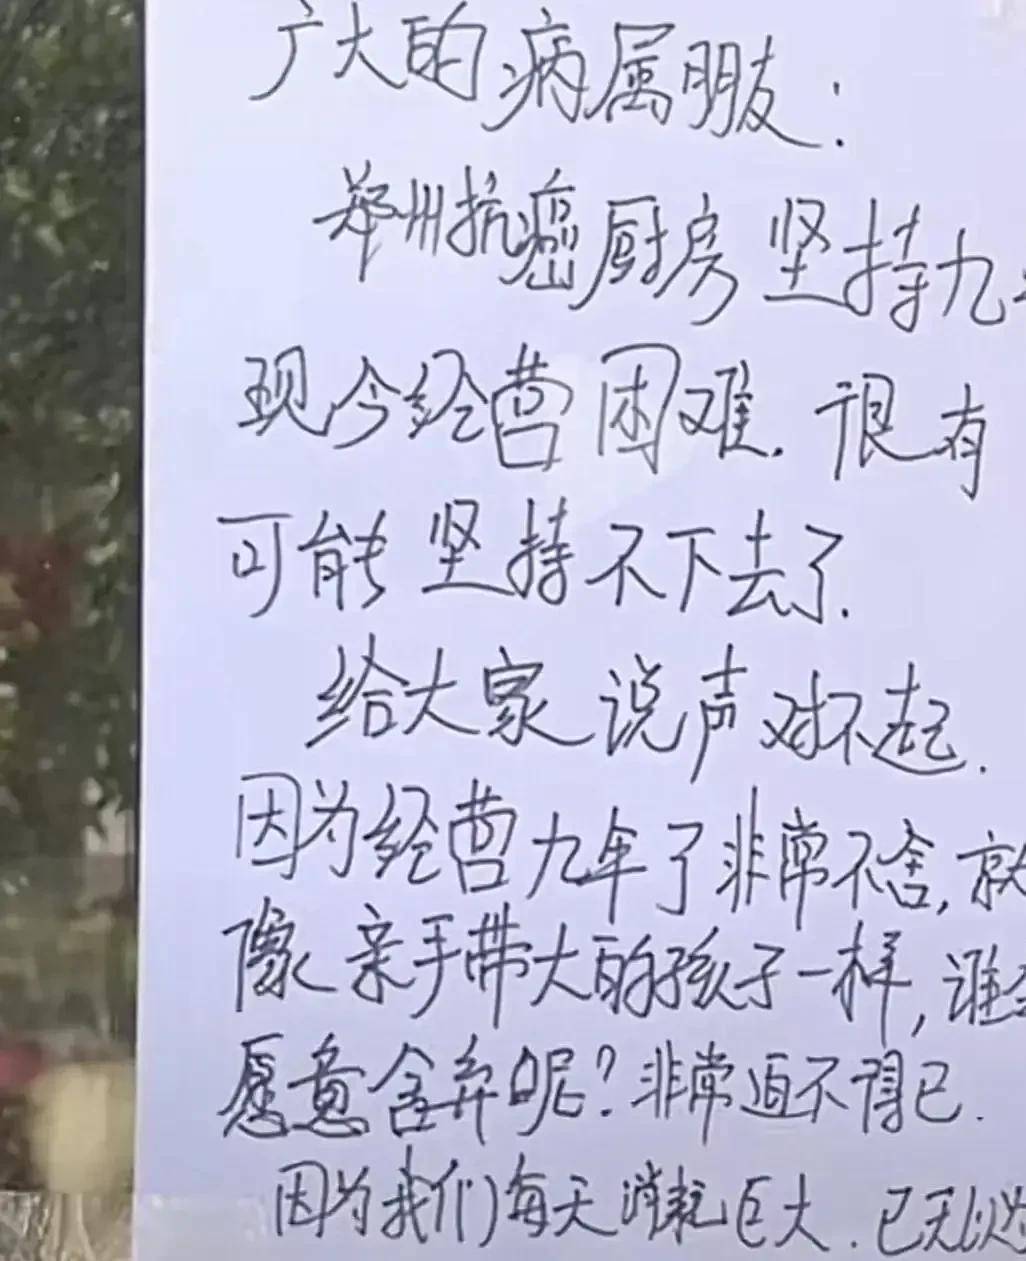 广大的病属朋友:
郑州抗癌厨房坚持九
现今经营困难.很有
可能坚持不下去了.
给大家说声对不起.
因为经营九年了非常不舍,就
像亲手带大的孩子一样,谁会
愿意舍弃呢?非常迫不得已.
因为我们每天消耗巨大.已无以